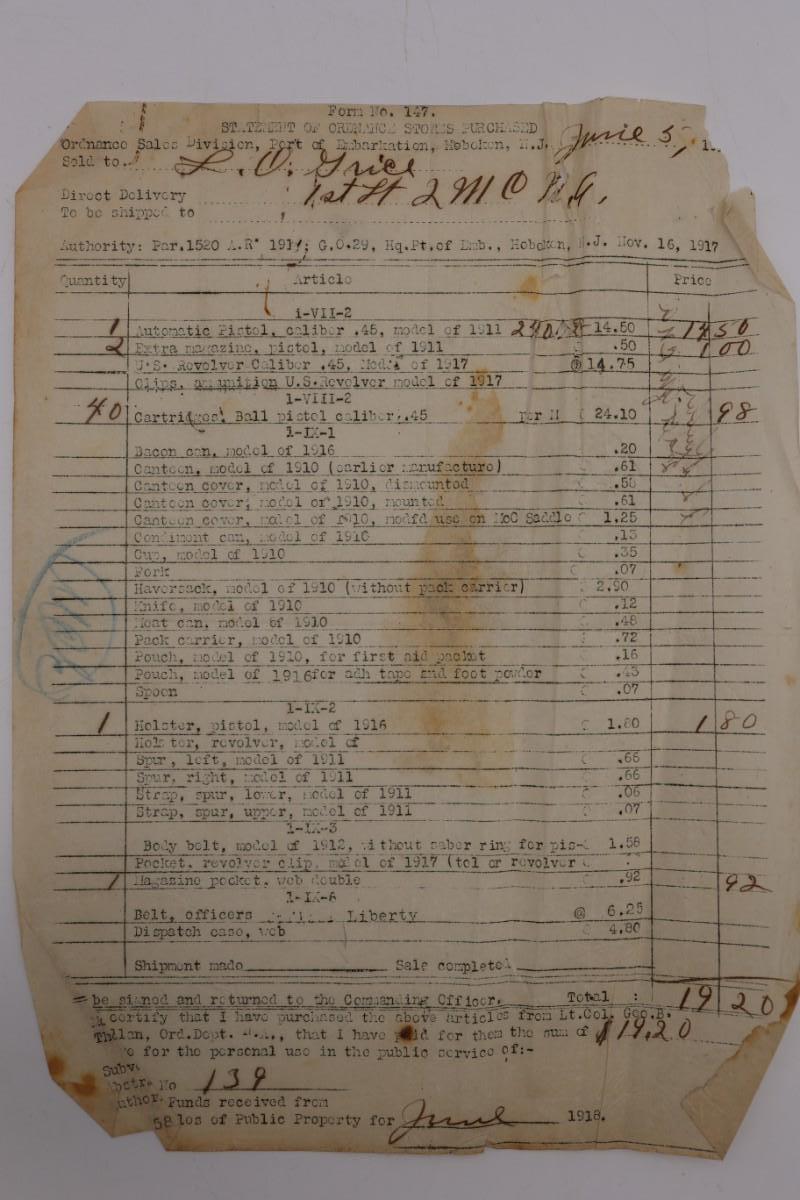 Form No. 147.
STATEMENT OF ORDNANCE STORES PURCHASED
Ordnance Sales Division, Port of Embarkation, Hoboken, N.J. June 5, 1
Sold to L. O. Grice
1st Lt 2 M O
Direct Delivery
To be shipped to
Authority: Par.1520 A.R. 1917; G.O.29, Hq.Pt.of Emb., Hoboken, N.J. Nov. 16, 1917
Quantity Article Price
1-VII-2
1 Automatic Pistol, caliber .45, model of 1911 @ 14.50 14 50
2 Extra magazine, pistol, model of 1911 .50 1 00
U.S. Revolver Caliber .45, Model of 1917 @ 14.75
Clips, ammunition U.S.Revolver model of 1917
1-VIII-2
40 Cartridges, Ball pistol caliber .45 per M 24.10 98
1-IX-1
Bacon can, model of 1916 .20
Canteen, model of 1910 (earlier manufacture) .61
Canteen cover, model of 1910, dismounted
Canteen cover, model of 1910, mounted .61
Canteen cover, model of 1910, modfd use on McC Saddle 1.25
Condiment can, model of 1910 .13
Cup, model of 1910 .35
Fork .07
Haversack, model of 1910 (without pack carrier) 2.90
Knife, model of 1910 .12
Meat can, model of 1910 .48
Pack carrier, model of 1910 .72
Pouch, model of 1910, for first aid packet .16
Pouch, model of 1916 for adh tape and foot powder
Spoon .07
1-IX-2
1 Holster, pistol, model of 1916 1.80 1 80
Holster, revolver, model of
Spur, left, model of 1911 .66
Spur, right, model of 1911 .66
Strap, spur, lower, model of 1911 .06
Strap, spur, upper, model of 1911 .07
1-IX-3
Body belt, model of 1912, without saber ring for pis- 1.58
Pocket, revolver clip, model of 1917 (tol or revolver
1 Magazine pocket, web double .92 92
1-IX-6
Belt, officers Liberty @ 6.25
Dispatch case, web 4.80
Shipment made Sale completed
be signed and returned to the Commanding Officer. Total : 19 20
certify that I have purchased the above articles from Lt.Col. Geo.B.
Ord.Dept. that I have paid for them the sum of $19.20
for the personal use in the public service of:-
Subv.
Abstr. No 139
Author. Funds received from
58 les of Public Property for June 1918.